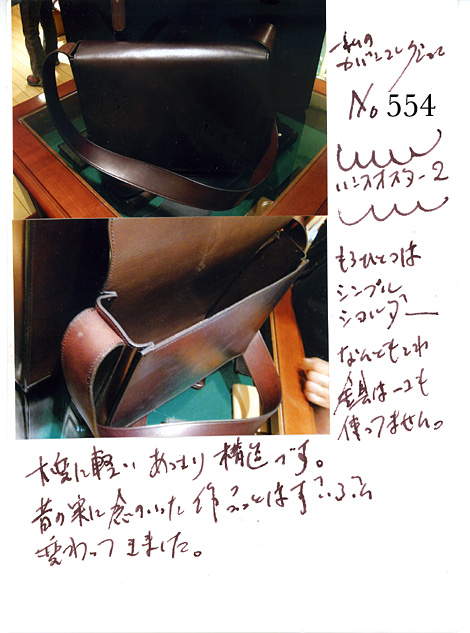 私の
カバンコレクション
No 554
ハンスオスター2
もうひとつは
シンプル
ショルダー
なんでもこれ
金具は一つも
使ってません。
大変に軽い あっさり構造です。
昔の実に念のいった作品とは
変わってきました。